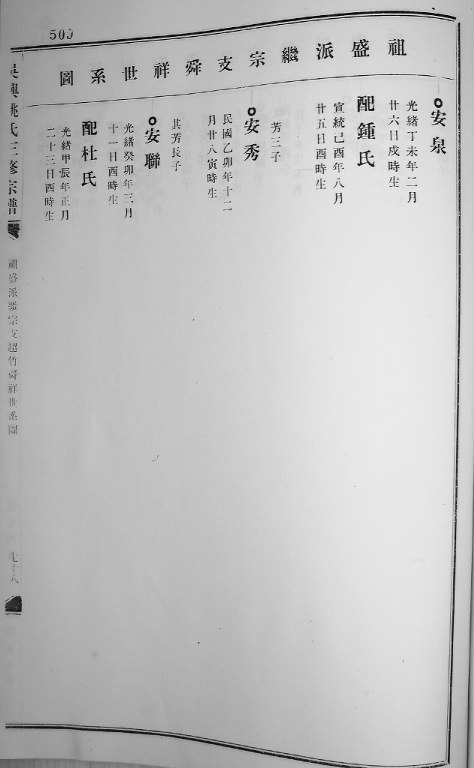 500
祖盛派繼宗支舜祥世系圖
安泉
光緒丁未年二月
廿六日戌時生
配鍾氏
宣統己酉年八月
廿五日酉時生
芳三子
安秀
民國乙卯年十二
月廿八寅時生
其芳長子
安聯
光緒癸卯年三月
十一日酉時生
配杜氏
光緒甲辰年正月
二十三日酉時生
吳興姚氏三修宗譜
祖盛派繼宗支超竹舜祥世系圖